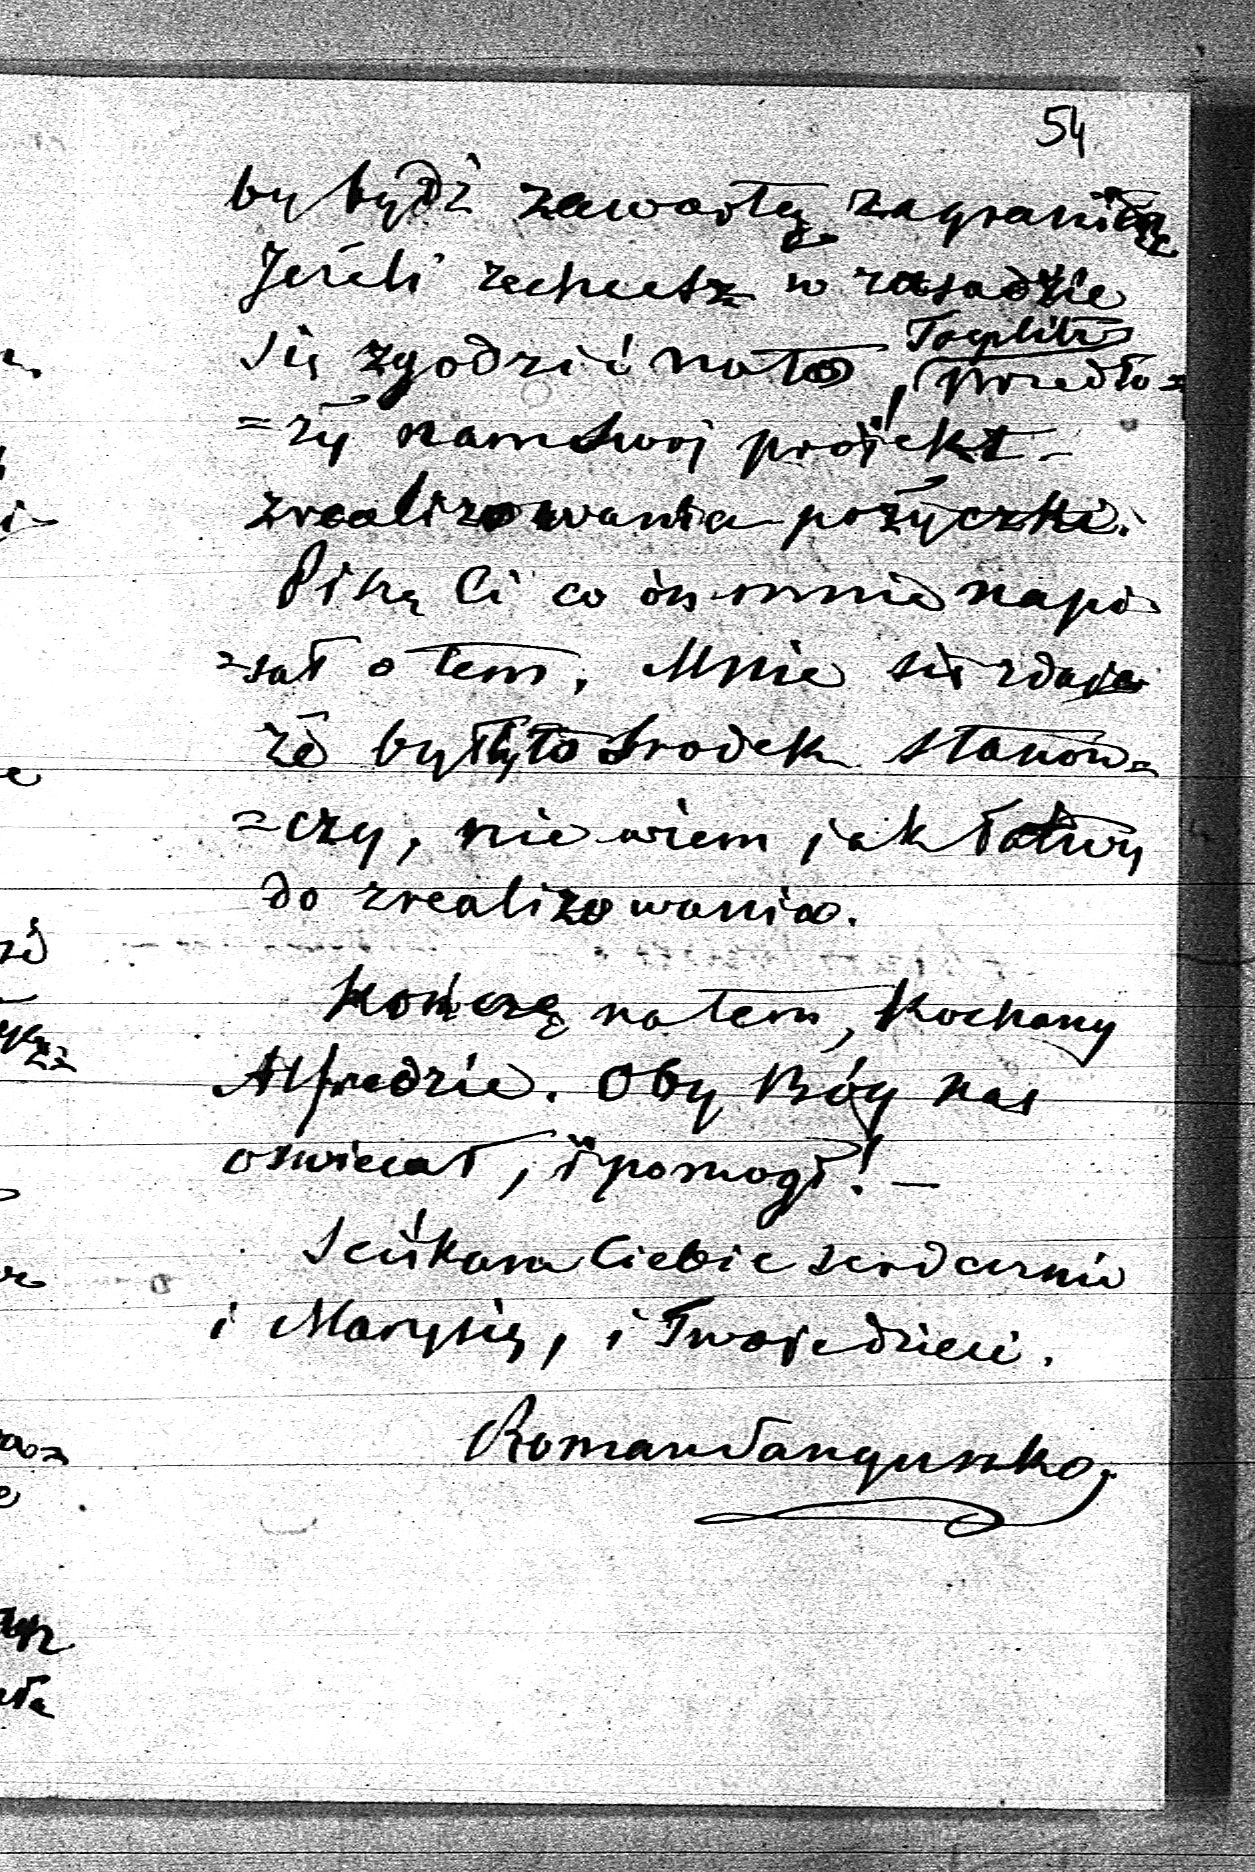 54
by bydź zawartą zagranicą
Jeżeli zechcesz w zasadzie
się zgodzić na to, Toeplitz przedło=
=ży nam swoj projekt
zrealizowania pożyczki.
Piszę Ci co on mnie napi=
=sał o tem. Mnie się zdaje
że byłby to srodek stanow=
=czy, nie wiem jak łatwy
do zrealizowania.
Kończę na tem, Kochany
Alfredzie. Oby Bóg nas
oswiecał, i pomógł! —
Sciskam Ciebie serdecznie
i Marysię, i Twoje dzieci.
Roman Sanguszko.